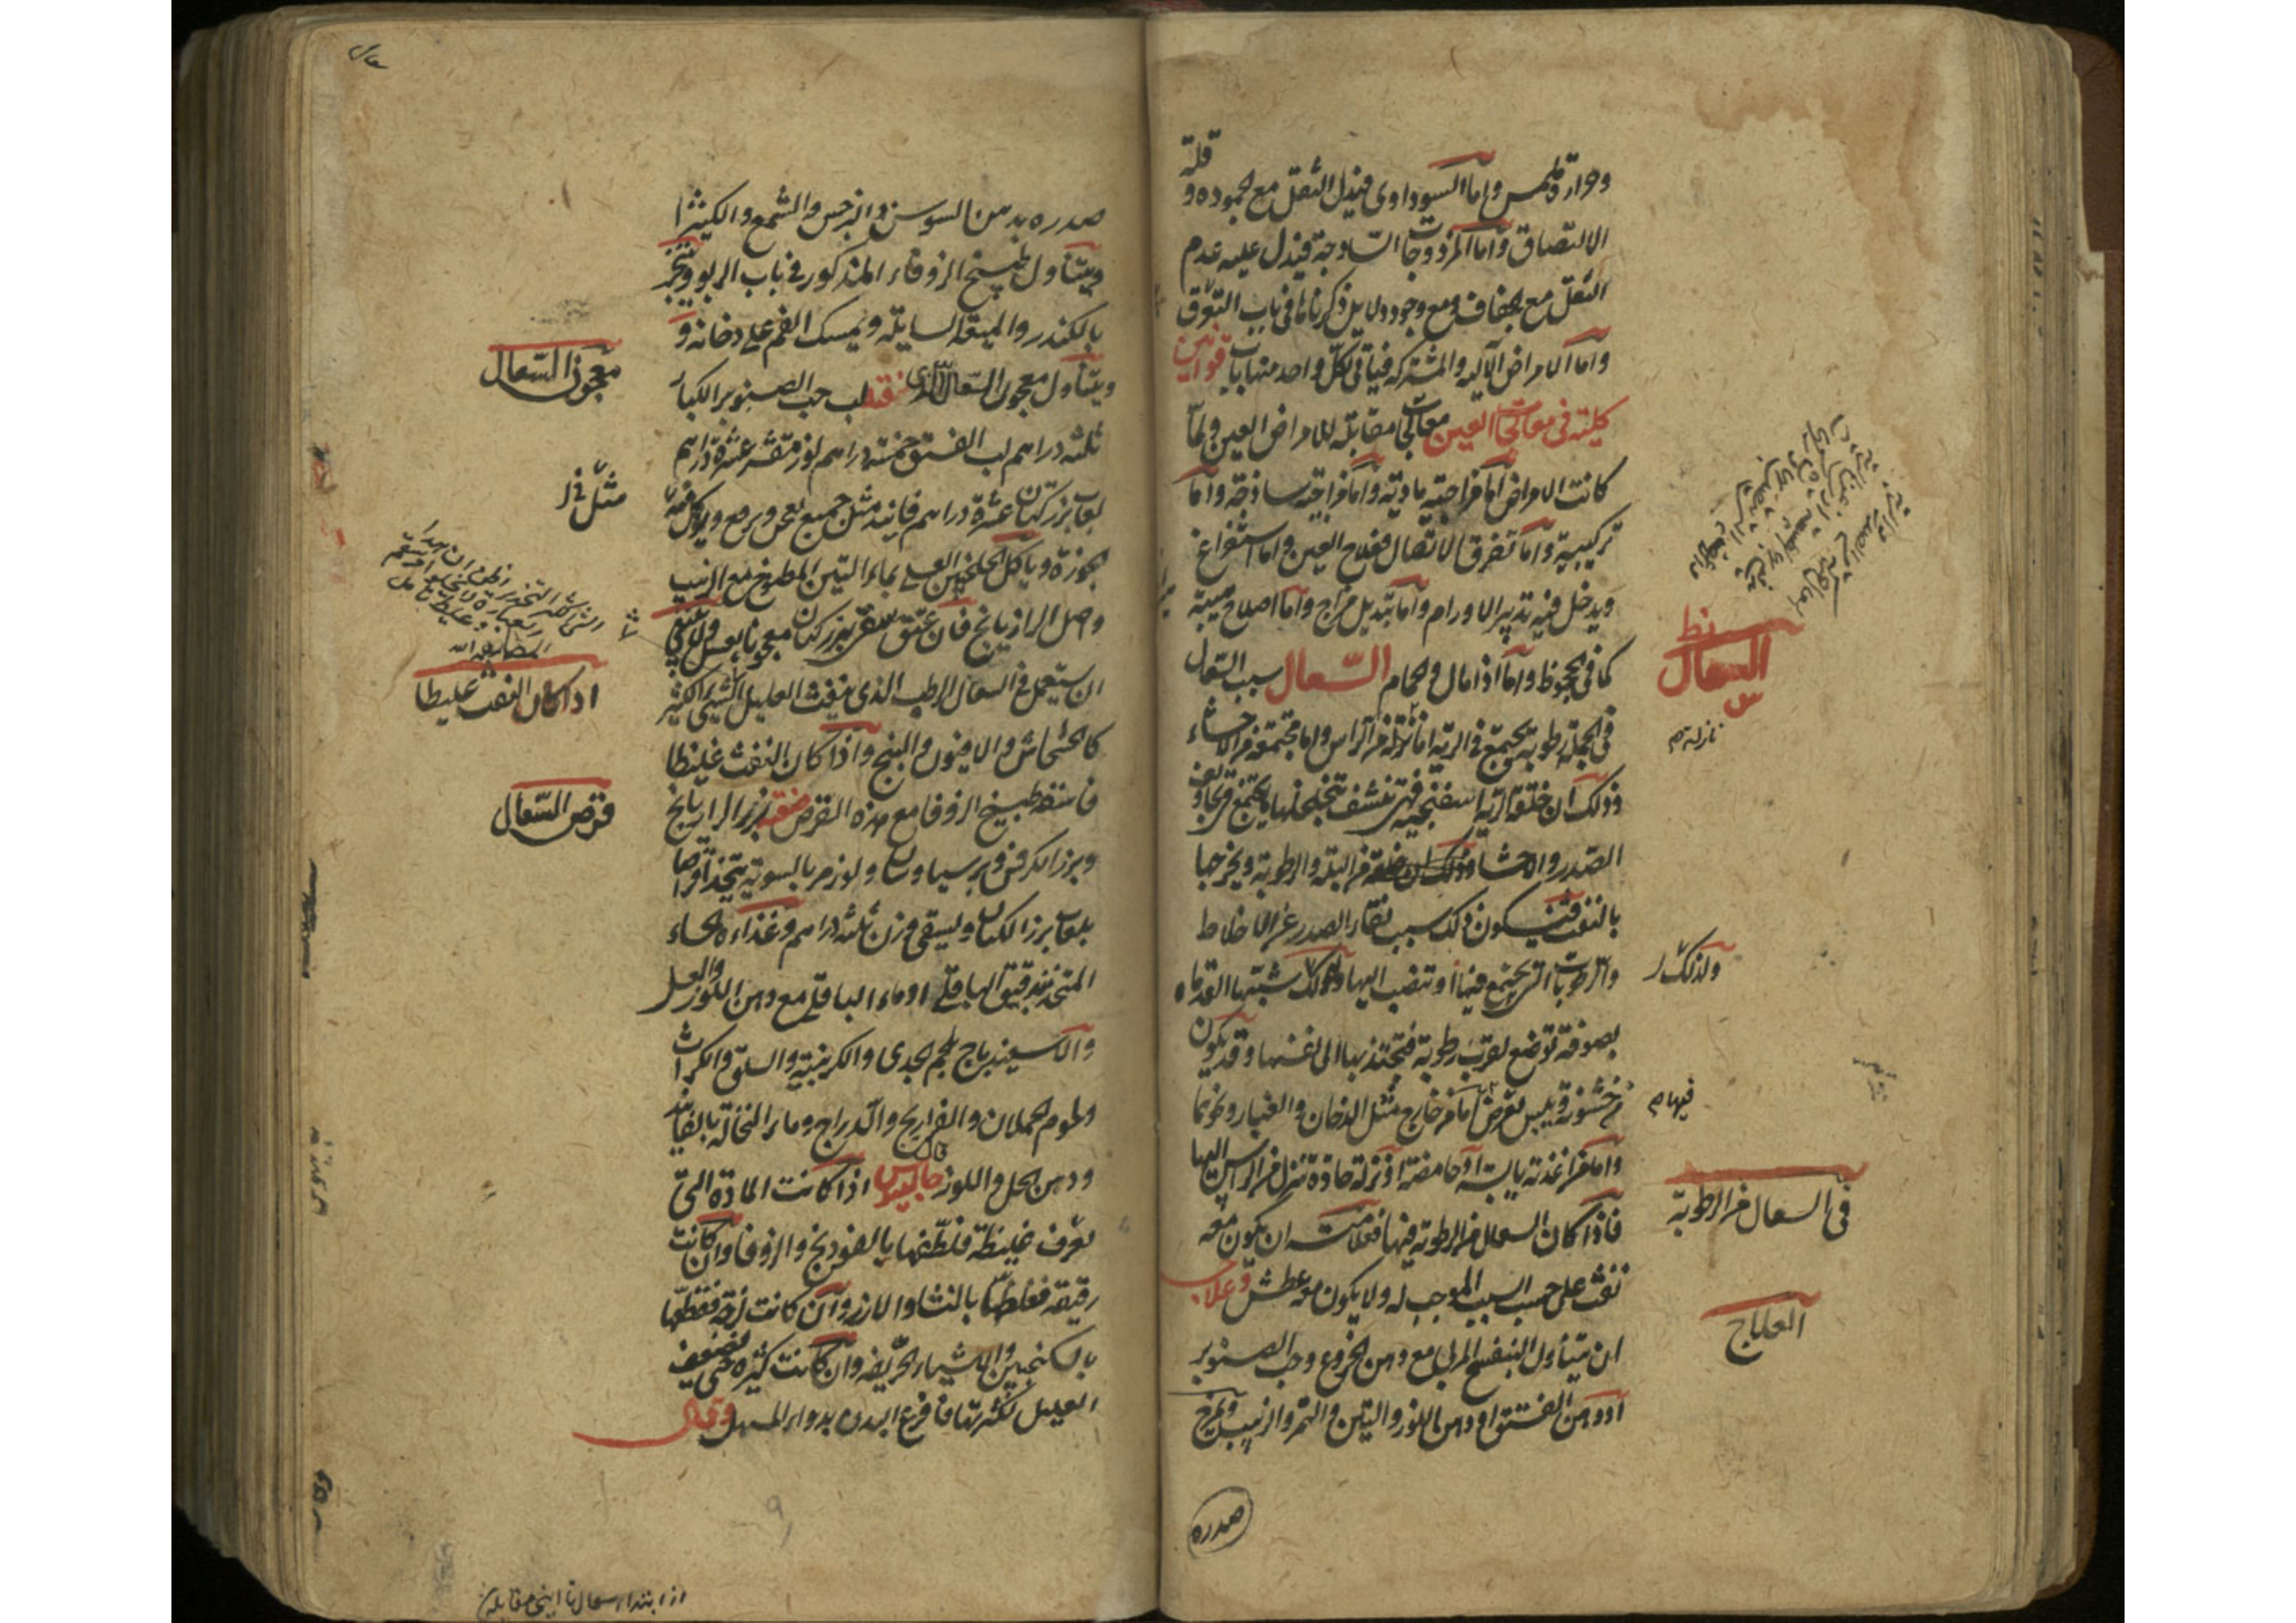 قلة
وحرارة ملمس واما السوداوى فيدل الثقل مع الجموده و
الالتصاق واما المزدوجات الساذجة فيدل عليه عدم
الثقل مع جفاف ومع وجود دلايل ذكرناها فى باب التعرق
واما الامراض الآلية والمشتركة فياتى لكل واحد منها باب قوانين
كلية فى معالجة العين معالجات مقابلة للامراض العين ولما
كانت الامراض اما مزاجية مادية واما مزاجية ساذجة واما
تركيبية واما تفرق الاتصال فعلاج العين اما استفراغ
ويدخل فيه تدبير الاورام واما تبديل مزاج واما اصلاح هيئة
كما فى الجحوظ واما اذا مال والحمام السعال سبب السعال
فى الجملة رطوبة تجتمع فى الرية اما نازلة من الراس واما مجتمعة من الاحشاء
وذلك ان خلقة الرية اسفنجية فهى تنشف بتخلخلها ما يجتمع فى تجاويف
الصدر والاحشا من البلة والرطوبة ويخرجها
بالنفث فيكون ذلك سبب نقاء الصدر عن الاخلاط
والرطوبات التى تجتمع فيها او تنصب اليها ولذلك شبهها القدماء
بصوفة توضع لقرب رطوبة فتجتذبها الى نفسها وقد يكون
من خشونة ويبس تعرض اما من خارج مثل الدخان والغبار ونحوهما
واما من اغذية يابسة او حامضة او نزلة حادة تنزل من الراس اليها
فاذا كان السعال من الرطوبة فيها فعلامته ان يكون معه
نفث على حسب السبب الموجب له ولا يكون معه عطش وعلاجه
ان يتناول البنفسج المربى مع دهن الخروع وحب الصنوبر
او دهن الفستق او دهن اللوز والتين والتمر والزبيب ويمرخ
صدره
السعال
نازلة م
ولذلك
فيها م
فى السعال من الرطوبة
العلاج
صدره بدهن السوسن والنرجس والشمع والكثيرا
ويتناول طبيخ الزوفاء المذكور فى باب الربو ويتبخر
بالكندر والميعة السايلة ويمسك الفم على دخانه و
ويتناول معجون السعال الذى لب حب الصنوبر الكبار
ثلثة دراهم لب الفستق خمسة دراهم لوز مقشر عشرة دراهم
لعاب بزر كتان عشرة دراهم فانيد مثل جميع يعجن ويرفع ويوكل منه
جوزة وياكل الجلنجبين العسلى بماء التين المطبوخ مع الزبيب
واصل الرازيانج فان عتق سقى بزر كتان معجونا بعسل ولا ينبغى
ان يستعمل فى السعال الرطب الذى ينفث العليل الشئ الكثير
كالخشخاش والافيون والبنج واذا كان النفث غليظا
فاسقه طبيخ الزوفا مع هذه القرص بزر الرازيانج
وبزر الكرفس وبرسياوشان ولوز مر بالسوية يتخذ اقراصا
بلعاب بزر الكتان ويسقى وزن ثلثة دراهم وغذاءه الحساء
المتخذ بدقيق الباقلى او ماء الباقلى مع دهن اللوز والعسل
والاسفيدباج بلحم الجدى والكرنبية والسلق والكراث
ولحوم الحملان والفراريج والدراج وماء النخالة بالفانيد
ودهن الحل واللوز قال جالينوس اذا كانت المادة التى
تعرف غليظة فلطفها بالفودنج والزوفا وان كانت
رقيقة فغلظها بالنشا والارز وان كانت لزجة فقطعها
بالسكنجبين والاشياء الحريفة وان كانت كثيرة حتى يضعف
العليل لكثرتها فافرغ البدن بدواء المسهل وقال
معجون السعال
مثل
اذا كان النفث غليظا
قرص السعال
از ابتداء سعال تا اينجا مقابله